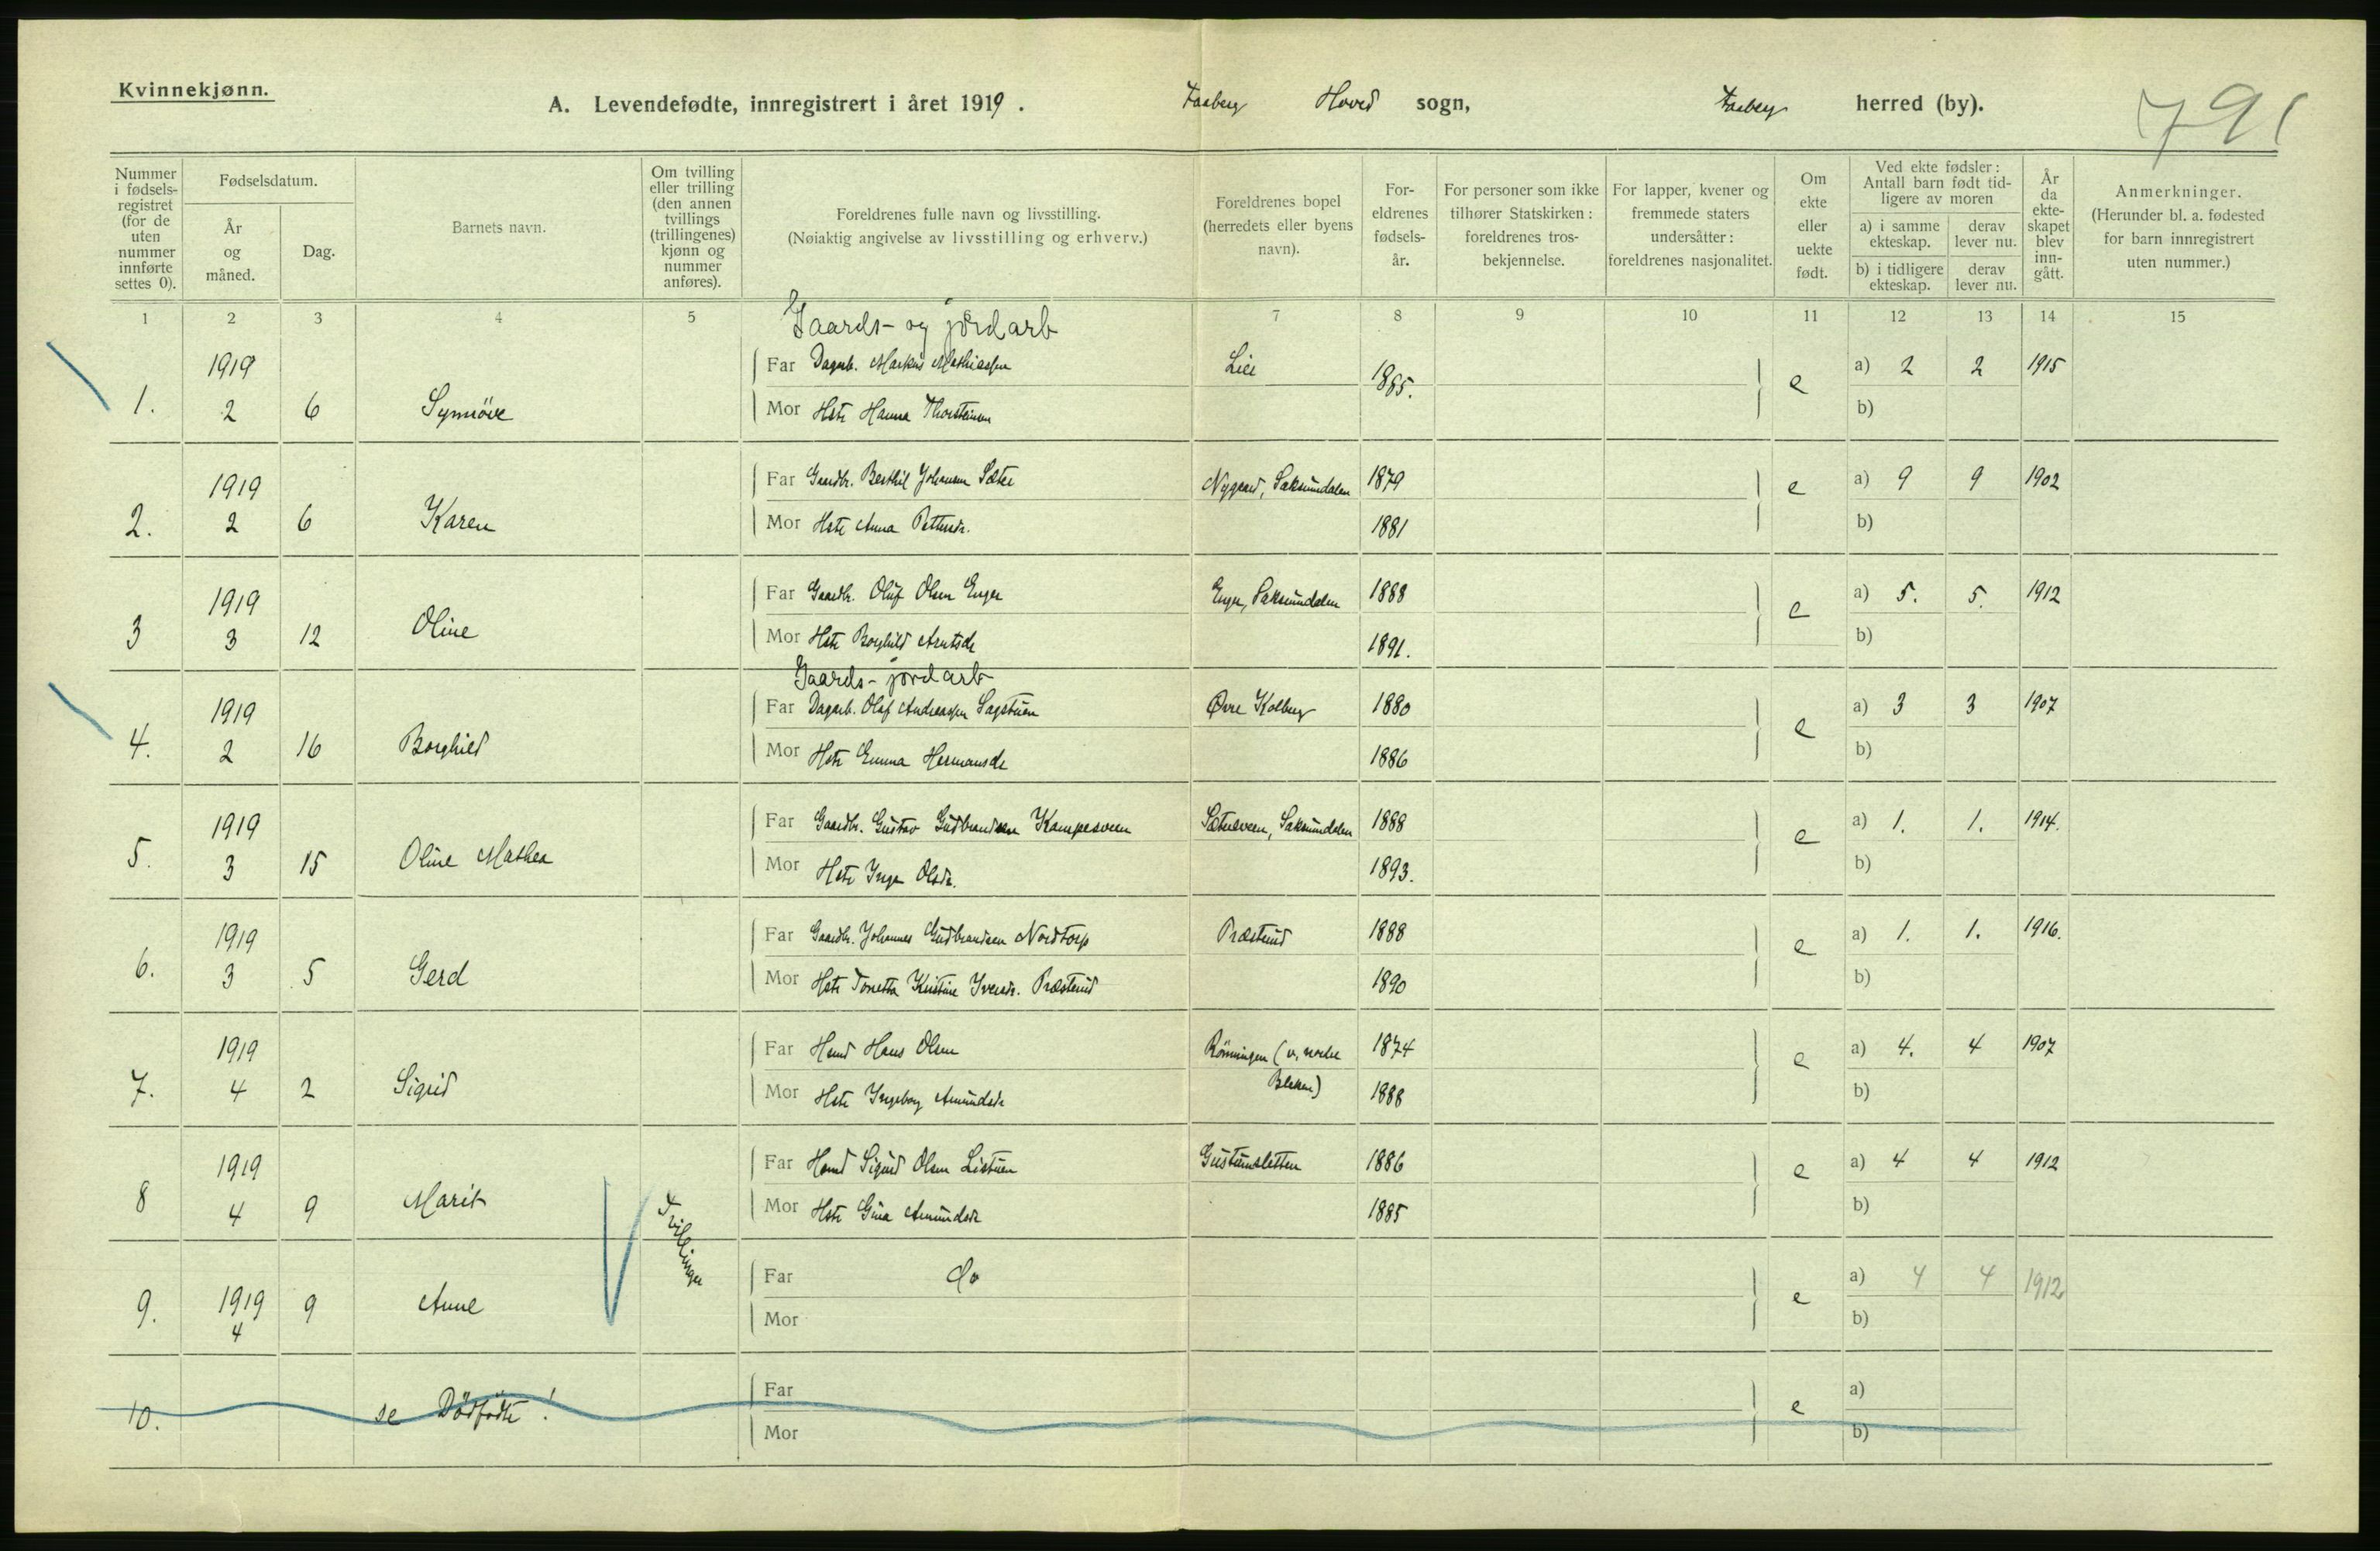 Kvinnekjønn.
A. Levendefødte, innregistrert i året 1919. Faaberg Hoved sogn, Faaberg herred (by).
791
Nummer i fødsels-registret (for de uten nummer innførte settes 0).
Fødselsdatum.
År og måned.
Dag.
Barnets navn.
Om tvilling eller trilling (den annen tvillings (trillingenes) kjønn og nummer anføres).
Foreldrenes fulle navn og livsstilling.
(Nøiaktig angivelse av livsstilling og erhverv.)
Foreldrenes bopel (herredets eller byens navn).
For-eldrenes fødsels-år.
For personer som ikke tilhører Statskirken: foreldrenes tros-bekjennelse.
For lapper, kvener og fremmede staters undersåtter: foreldrenes nasjonalitet.
Om ekte eller uekte født.
Ved ekte fødsler: Antall barn født tid-ligere av moren
a) i samme ekteskap.
derav lever nu.
b) i tidligere ekteskap.
derav lever nu.
År da ekte-skapet blev inn-gått.
Anmerkninger.
(Herunder bl. a. fødested for barn innregistrert uten nummer.)
1 2 3 4 5 7 8 9 10 11 12 13 14 15
Gaards- og jordarb
1. 1919 2 6 Synnöve
Far Dagarb. Markus Mathiassen Lier 1885. e a) 2 2 1915
Mor Hstr Hanna Thorsteinsen b)
2. 1919 2 6 Karen
Far Gaardbr. Berthil Johansen Sætre Nygaard, Saksumdalen 1879 e a) 9 9 1902
Mor Hstr Anna Pettersdr. 1881 b)
3 1919 3 12 Oline
Far Gaardbr. Oluf Olsen Enger Enger, Saksumdalen 1888 e a) 5. 5. 1912
Mor Hstr Borghild Arntsdr 1891. b)
Gaards- jordarb
4. 1919 2 16 Borghild
Far Dagarb. Olaf Andreassen Sagstuen Øvre Kolberg 1880 e a) 3 3 1907
Mor Hstr Emma Hermansdr 1886 b)
5. 1919 3 15 Oline Mathea
Far Gaardbr. Gustav Gudbrandsen Kampesveen Sætersveen, Saksumdalen 1888 e a) 1. 1. 1914.
Mor Hstr Inga Olsdr. 1893. b)
6. 1919 3 5 Gerd
Far Gaardbr. Johannes Gudbrandsen Nordtorp Præsterud 1888 e a) 1. 1. 1916.
Mor Hstr Tonetta Kristine Iversdr. Præsterud 1890 b)
7. 1919 4 2 Sigrid
Far Hmd Hans Olsen Rönningen (v. nordre 1874 e a) 4. 4 1907
Mor Hstr Ingeborg Amundsdr Bleken) 1888 b)
8 1919 4 9 Marit Trillinger
Far Hmd Sigurd Olsen Listuen Gustumsletten 1886 e a) 4 4 1912
Mor Hstr Gina Amundsdr 1885 b)
9. 1919 4 9 Anne
Far do e a) 4 4 1912
Mor b)
10. se Dödfödte!
Far e a)
Mor b)